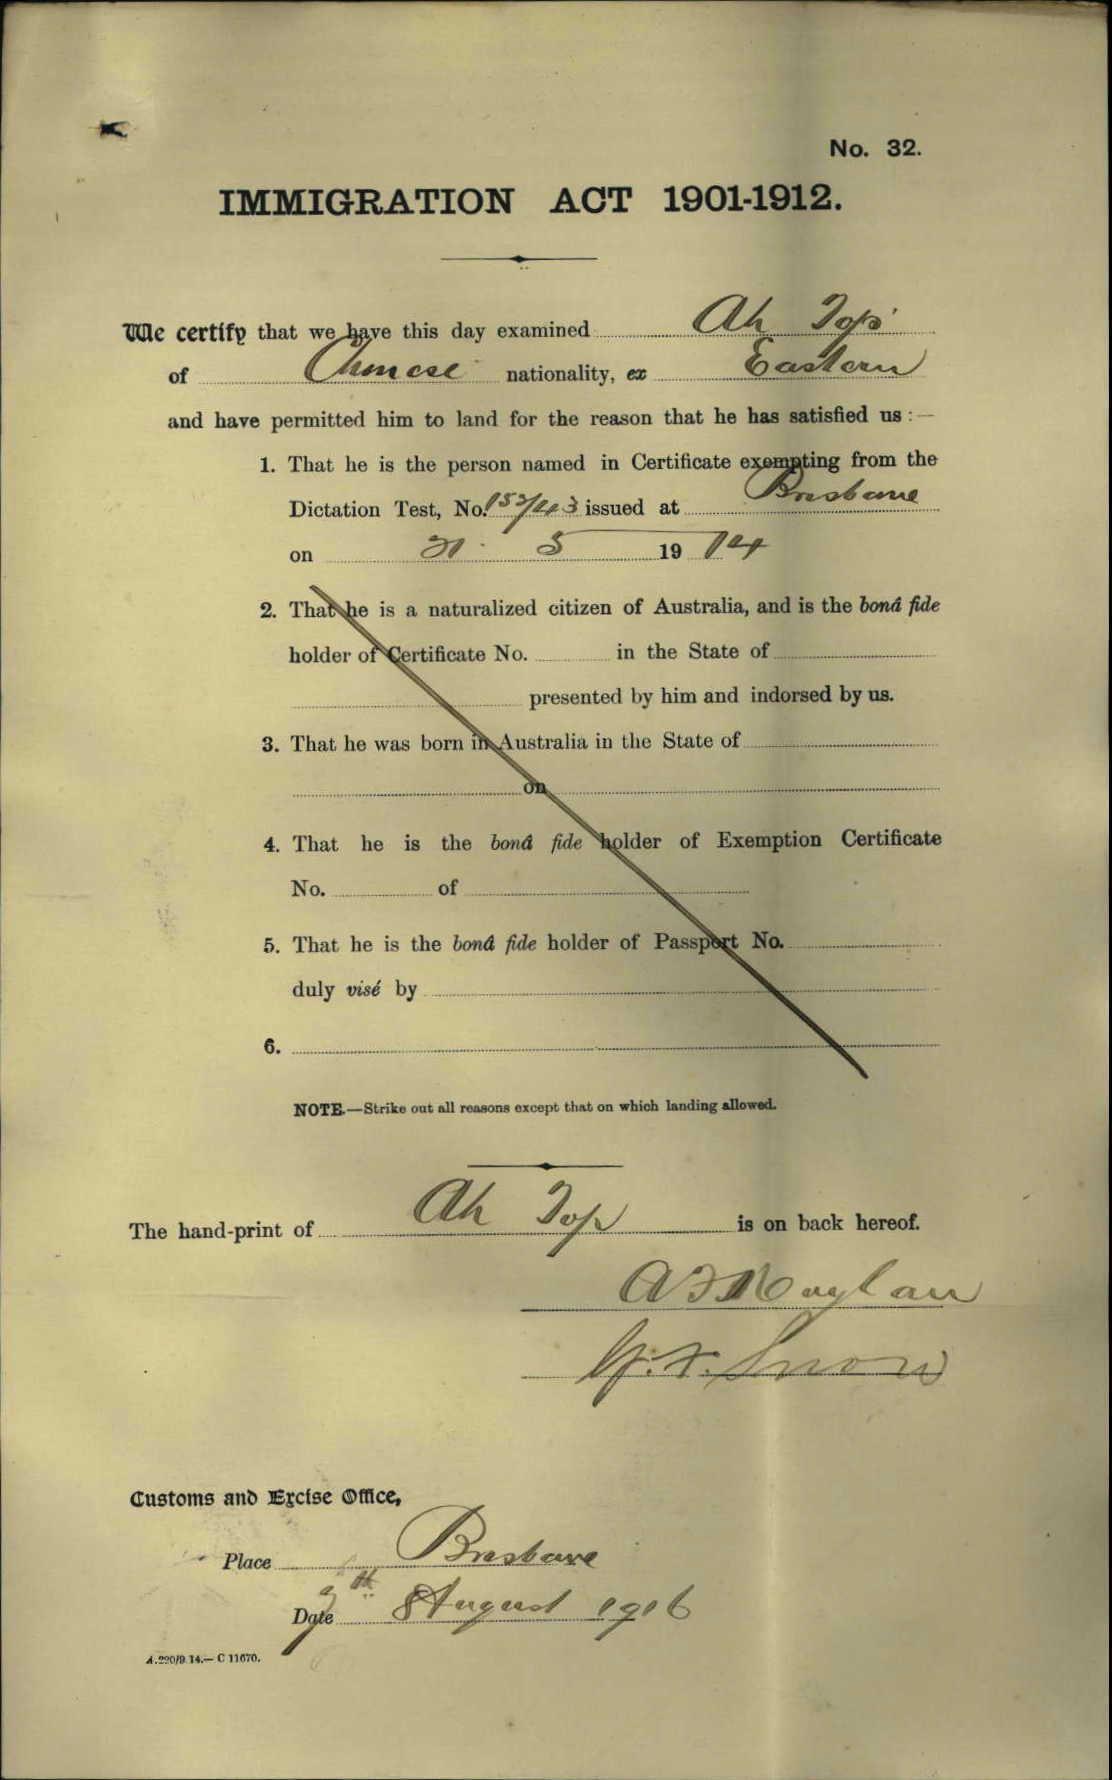 No. 32.
IMMIGRATION ACT 1901-1912.
We certify that we have this day examined Ah Top
of Chinese nationality, ex Eastern
and have permitted him to land for the reason that he has satisfied us :—
1. That he is the person named in Certificate exempting from the
Dictation Test, No. 153/43 issued at Brisbane
on 21 . 5 1914
2. That he is a naturalized citizen of Australia, and is the bonâ fide
holder of Certificate No. in the State of
presented by him and indorsed by us.
3. That he was born in Australia in the State of
on
4. That he is the bonâ fide holder of Exemption Certificate
No. of
5. That he is the bonâ fide holder of Passport No.
duly visé by
6.
NOTE.—Strike out all reasons except that on which landing allowed.
The hand-print of Ah Top is on back hereof.
Snow
Customs and Excise Office,
Place Brisbane
Date August 1916
A.220/9.14.—C 11670.